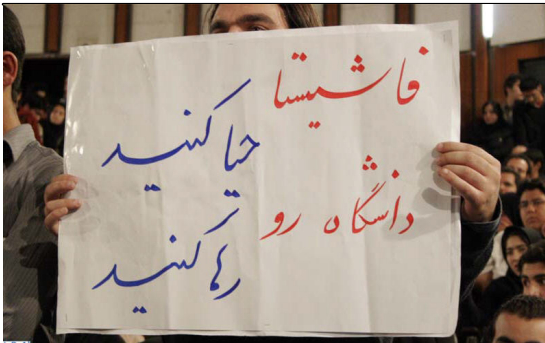 فاشیستا
حیا کنید
دانشگاه رو
رها کنید